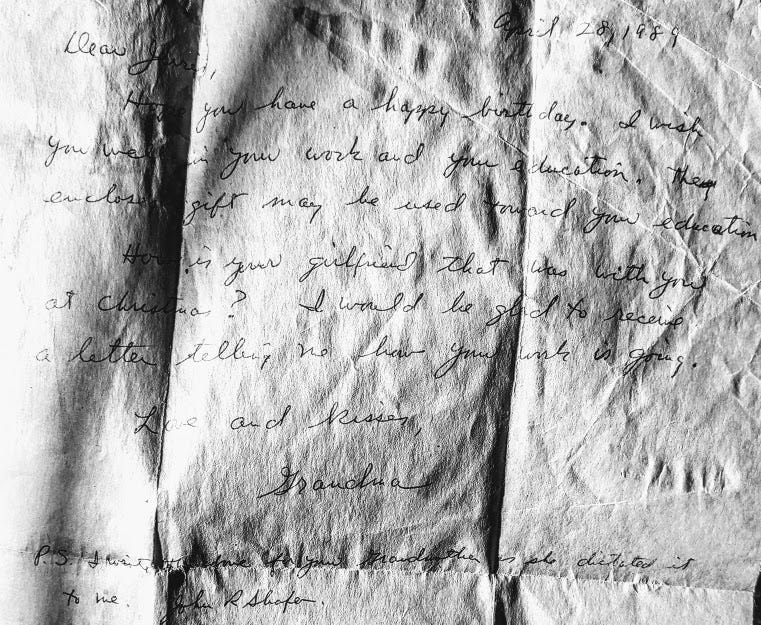 April 28, 1989
Dear
Hope you have a happy birthday. I wish
you well in your work and your education. The
enclosed gift may be used toward your education
How is your girlfriend that was with you
at Christmas? I would be glad to receive
a letter telling me how your work is going.
Love and Kisses,
Grandma
P.S. I for your Grandmother as she dictated it
to me. John R Shafer.